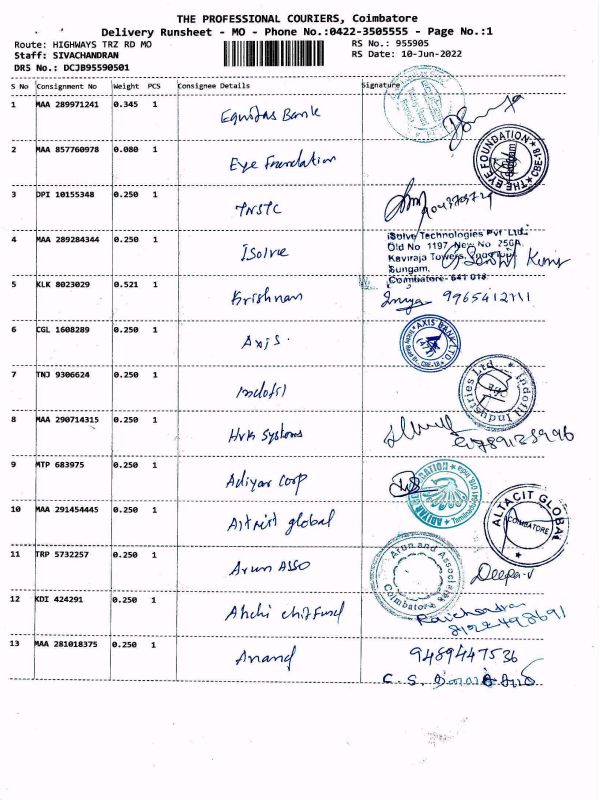 THE PROFESSIONAL COURIERS, Coimbatore
Delivery Runsheet - MO - Phone No.:0422-3505555 - Page No.:1
Route: HIGHWAYS TRZ RD MO RS No.: 955905
Staff: SIVACHANDRAN RS Date: 10-Jun-2022
DRS No.: DCJB95590501
S No Consignment No Weight PCS Consignee Details Signature
1 MAA 289971241 0.345 1 Equitas Bank
2 MAA 857760978 0.080 1 Eye Foundation
THE EYE FOUNDATION CBE-18
3 DPI 10155348 0.250 1 TNSTC
4 MAA 289284344 0.250 1 Isolve
iSolve Technologies Pvt Ltd.
Old No 1197, New No 256A,
Kaviraja Towers,
Sungam,
Coimbatore- 641 018
Kumar
5 KLK 8023029 0.521 1 Krishnan 9965412711
6 CGL 1608289 0.250 1 Axis.
AXIS BANK LTD CBE-18
7 TNJ 9306624 0.250 1 Indofil
Indofil Industries Ltd.
8 MAA 290714315 0.250 1 Hvk Systems
9 MTP 683975 0.250 1 Adiyar Corp
10 MAA 291454445 0.250 1 global
ALTACIT GLOBAL COIMBATORE
11 TRP 5732257 0.250 1 Arun ASSO
Arun and Associates Coimbatore
Deepa.v
12 KDI 424291 0.250 1 chitfund
Ravichandran
13 MAA 281018375 0.250 1 Anand 9489447536
C. S.